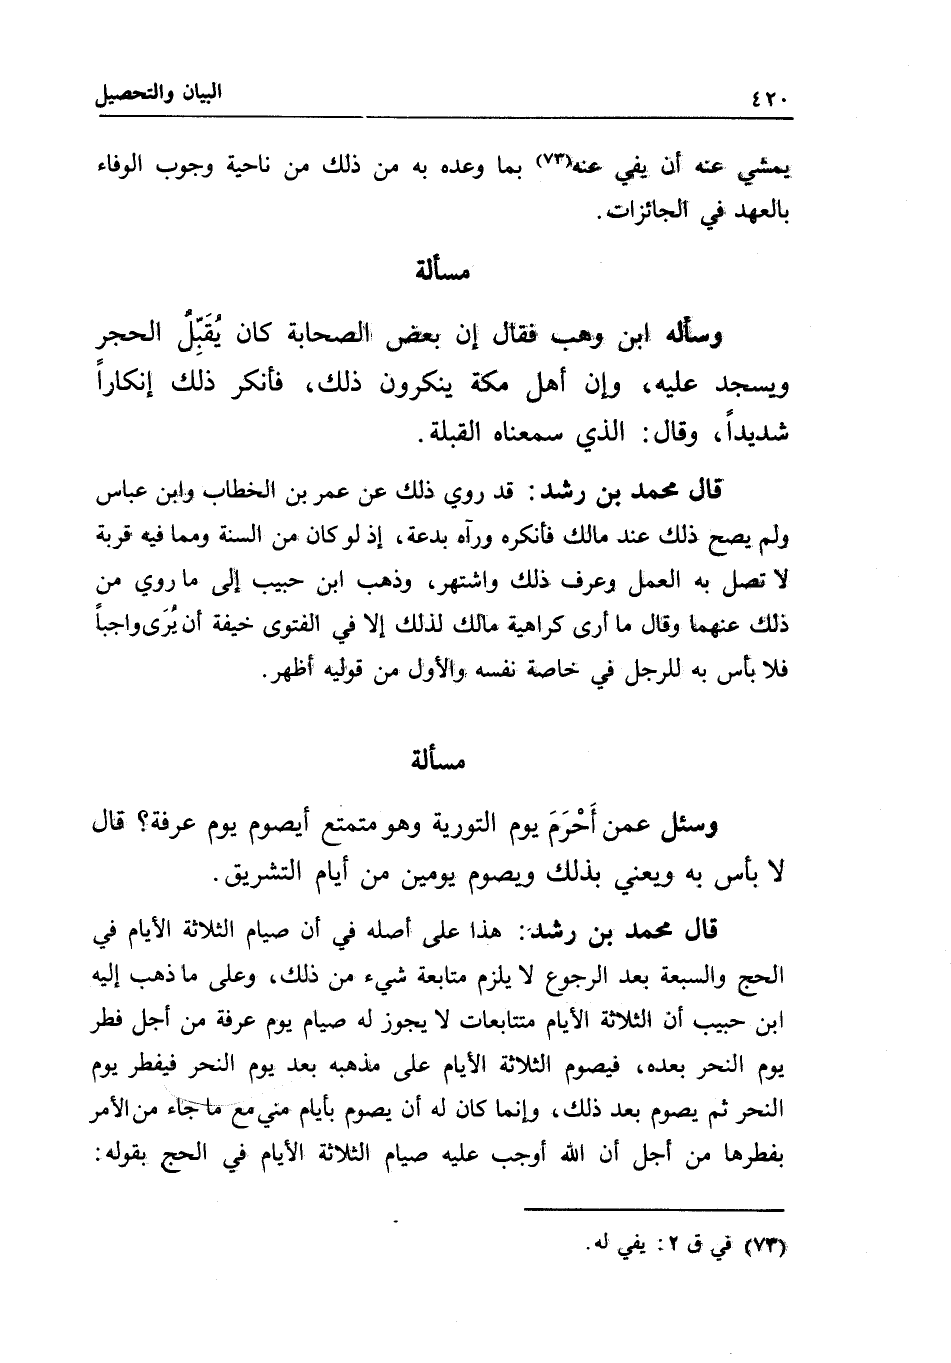 ٤٢٠ البيان والتحصيل
يمشي عنه أن يفي عنه(٧٣) بما وعده به من ذلك من ناحية وجوب الوفاء
بالعهد في الجائزات.
مسألة
وسأله ابن وهب فقال إن بعض الصحابة كان يُقَبِّلُ الحجر
ويسجد عليه، وإن أهل مكة ينكرون ذلك، فأنكر ذلك إنكاراً
شديداً، وقال: الذي سمعناه القبلة.
قال محمد بن رشد: قد روي ذلك عن عمر بن الخطاب وابن عباس
ولم يصح ذلك عند مالك فأنكره ورآه بدعة، إذ لو كان من السنة ومما فيه قربة
لا تصل به العمل وعرف ذلك واشتهر، وذهب ابن حبيب إلى ما روي من
ذلك عنهما وقال ما أرى كراهية مالك لذلك إلا في الفتوى خيفة أن يُرَى واجباً
فلا بأس به للرجل في خاصة نفسه والأول من قوليه أظهر.
مسألة
وسئل عمن أَحْرَمَ يوم التورية وهو متمتع أيصوم يوم عرفة؟ قال
لا بأس به ويعني بذلك ويصوم يومين من أيام التشريق.
قال محمد بن رشد: هذا على أصله في أن صيام الثلاثة الأيام في
الحج والسبعة بعد الرجوع لا يلزم متابعة شيء من ذلك، وعلى ما ذهب إليه
ابن حبيب أن الثلاثة الأيام متتابعات لا يجوز له صيام يوم عرفة من أجل فطر
يوم النحر بعده، فيصوم الثلاثة الأيام على مذهبه بعد يوم النحر فيفطر يوم
النحر ثم يصوم بعد ذلك، وإنما كان له أن يصوم بأيام مني مع ما جاء من الأمر
بفطرها من أجل أن الله أوجب عليه صيام الثلاثة الأيام في الحج بقوله:
(٧٣) في ق ٢: يفي له.